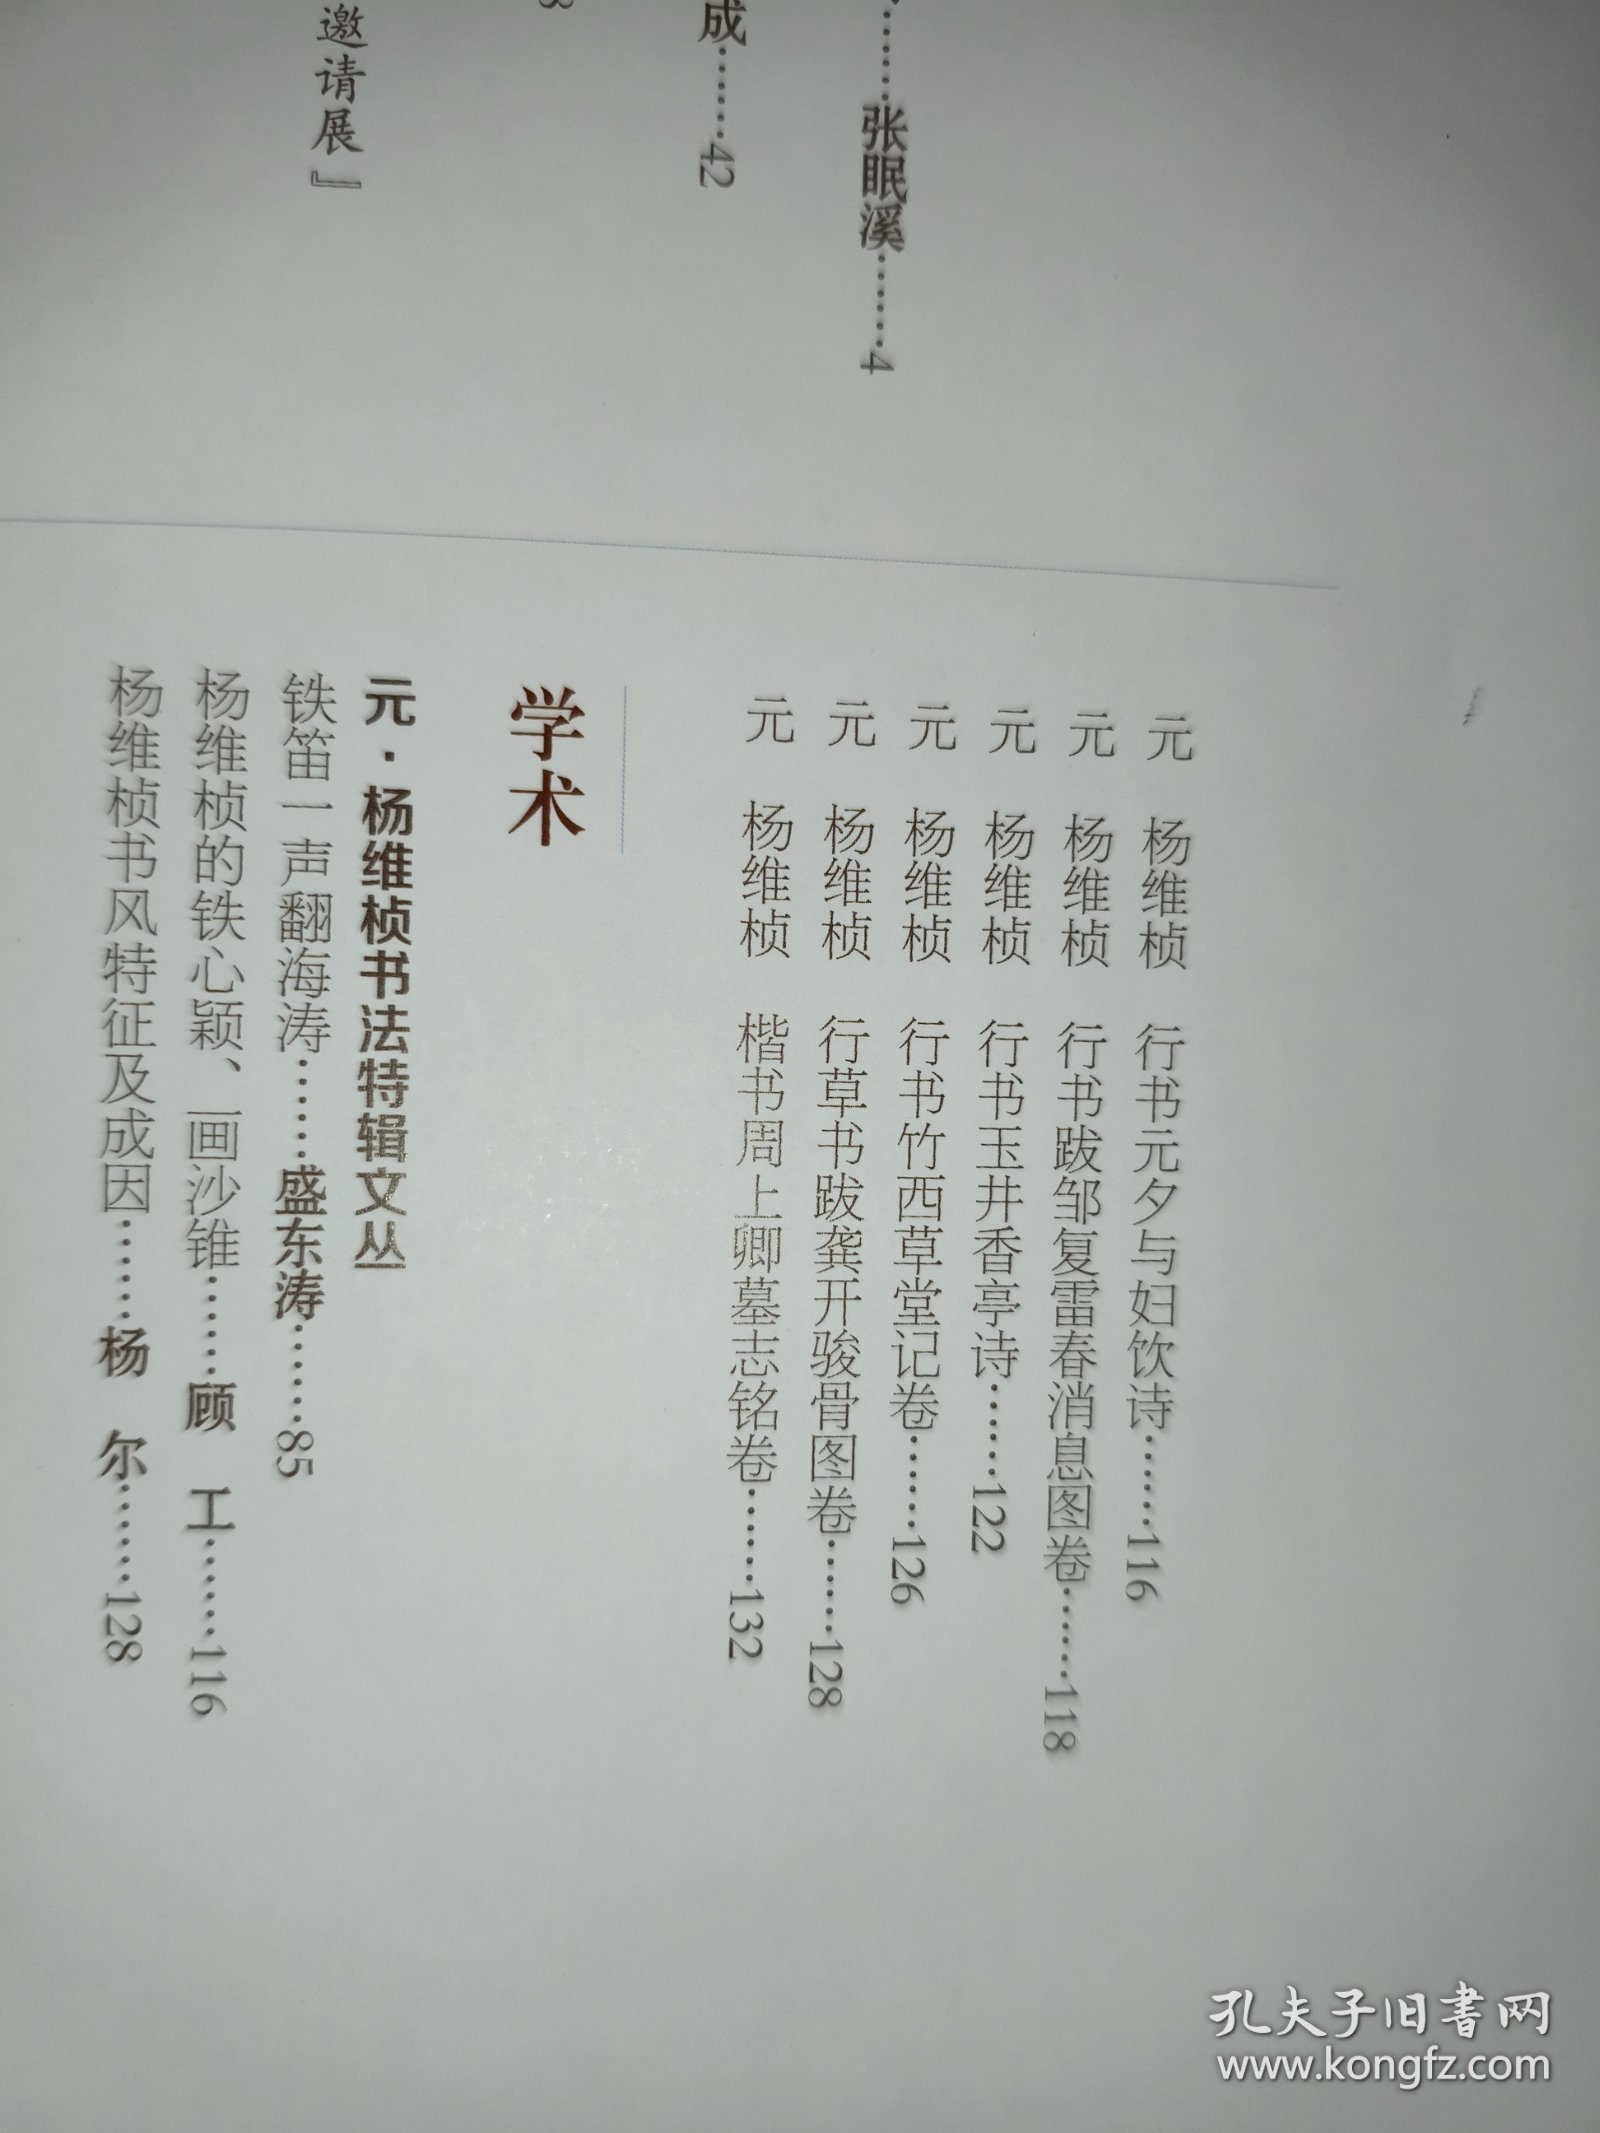 张眠溪……4
成……42
邀请展』
元 杨维桢 行书元夕与妇饮诗……116
元 杨维桢 行书跋邹复雷春消息图卷……118
元 杨维桢 行书玉井香亭诗……122
元 杨维桢 行书竹西草堂记卷……126
元 杨维桢 行草书跋龚开骏骨图卷……128
元 杨维桢 楷书周上卿墓志铭卷……132
学术
元·杨维桢书法特辑文丛
铁笛一声翻海涛……盛东涛……85
杨维桢的铁心颖、画沙锥……顾 工……116
杨维桢书风特征及成因……杨 尔……128
孔夫子旧书网
www.kongfz.com